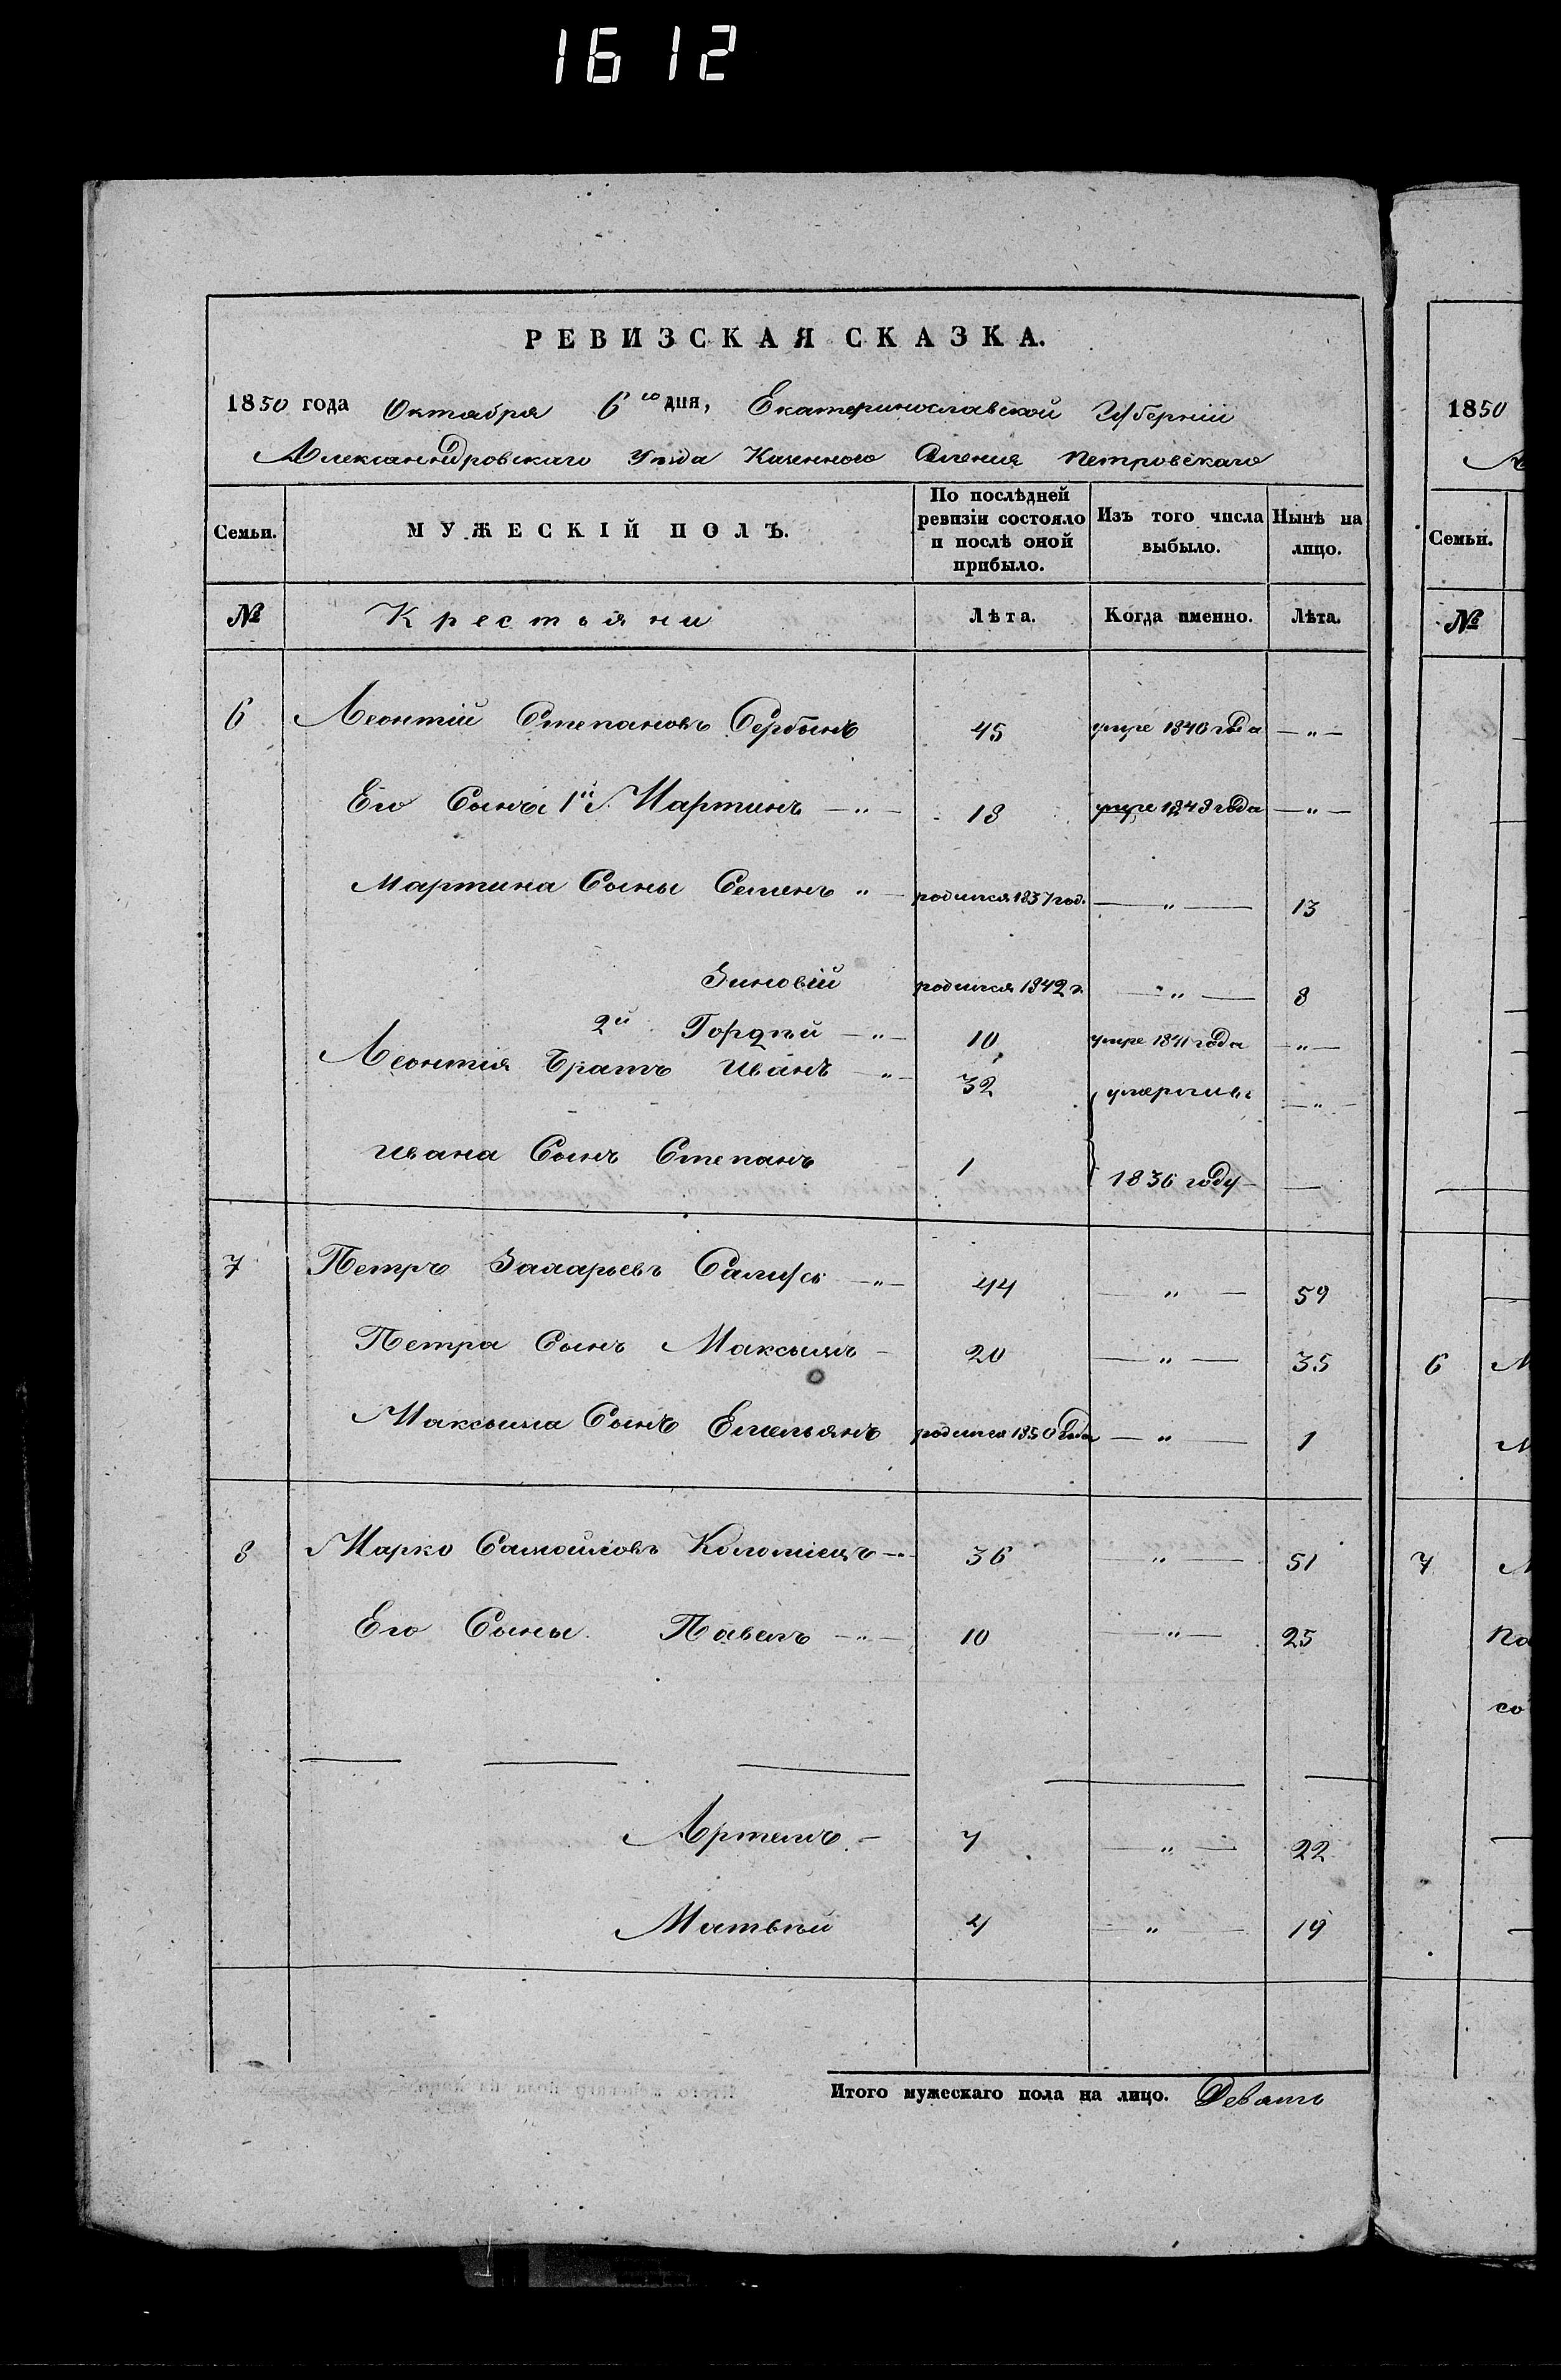 1612
РЕВИЗСКАЯ СКАЗКА.
1850 года Октября 6го дня, Екатеринославской Губерніи
Александровскаго Уѣзда Казенного Селения Петровскаго
Семьи. МУЖЕСКІЙ ПОЛЪ. По послѣдней ревизіи состояло и послѣ оной прибыло. Изъ того числа выбыло. Нынѣ на лицо.
№ Крестьяни Лѣта. Когда именно. Лѣта.
6 Леонтій Степановъ Сербинъ 45 умре 1846 года — " —
Его Сынъ 1й Мартинъ — " — 18 умре 1848 года — " —
Мартина Сыны Семенъ " — родился 1837 год. — " — 13
Зиновій родился 1842 г. — " — 8
2й Гордѣй — " — 10 умре 1841 года — " —
Леонтія Братъ Иванъ — " — 32 умерли — " —
Ивана Сынъ Степанъ 1 1836 году —
7 Петръ Захарьевъ — " — 44 — " — 59
Петра Сынъ Максимъ — 20 — " — 35
Максима Сынъ Емельянъ родился 1850 года — " — 1
8 Марко Самойловъ Коломіецъ — " — 36 — " — 51
Его Сыны Павелъ — " — 10 — " — 25
Артемъ — 7 — " — 22
Матвѣй 4 — " — 19
Итого мужескаго пола на лицо. Девять
1850
Семьи.
№
6
7